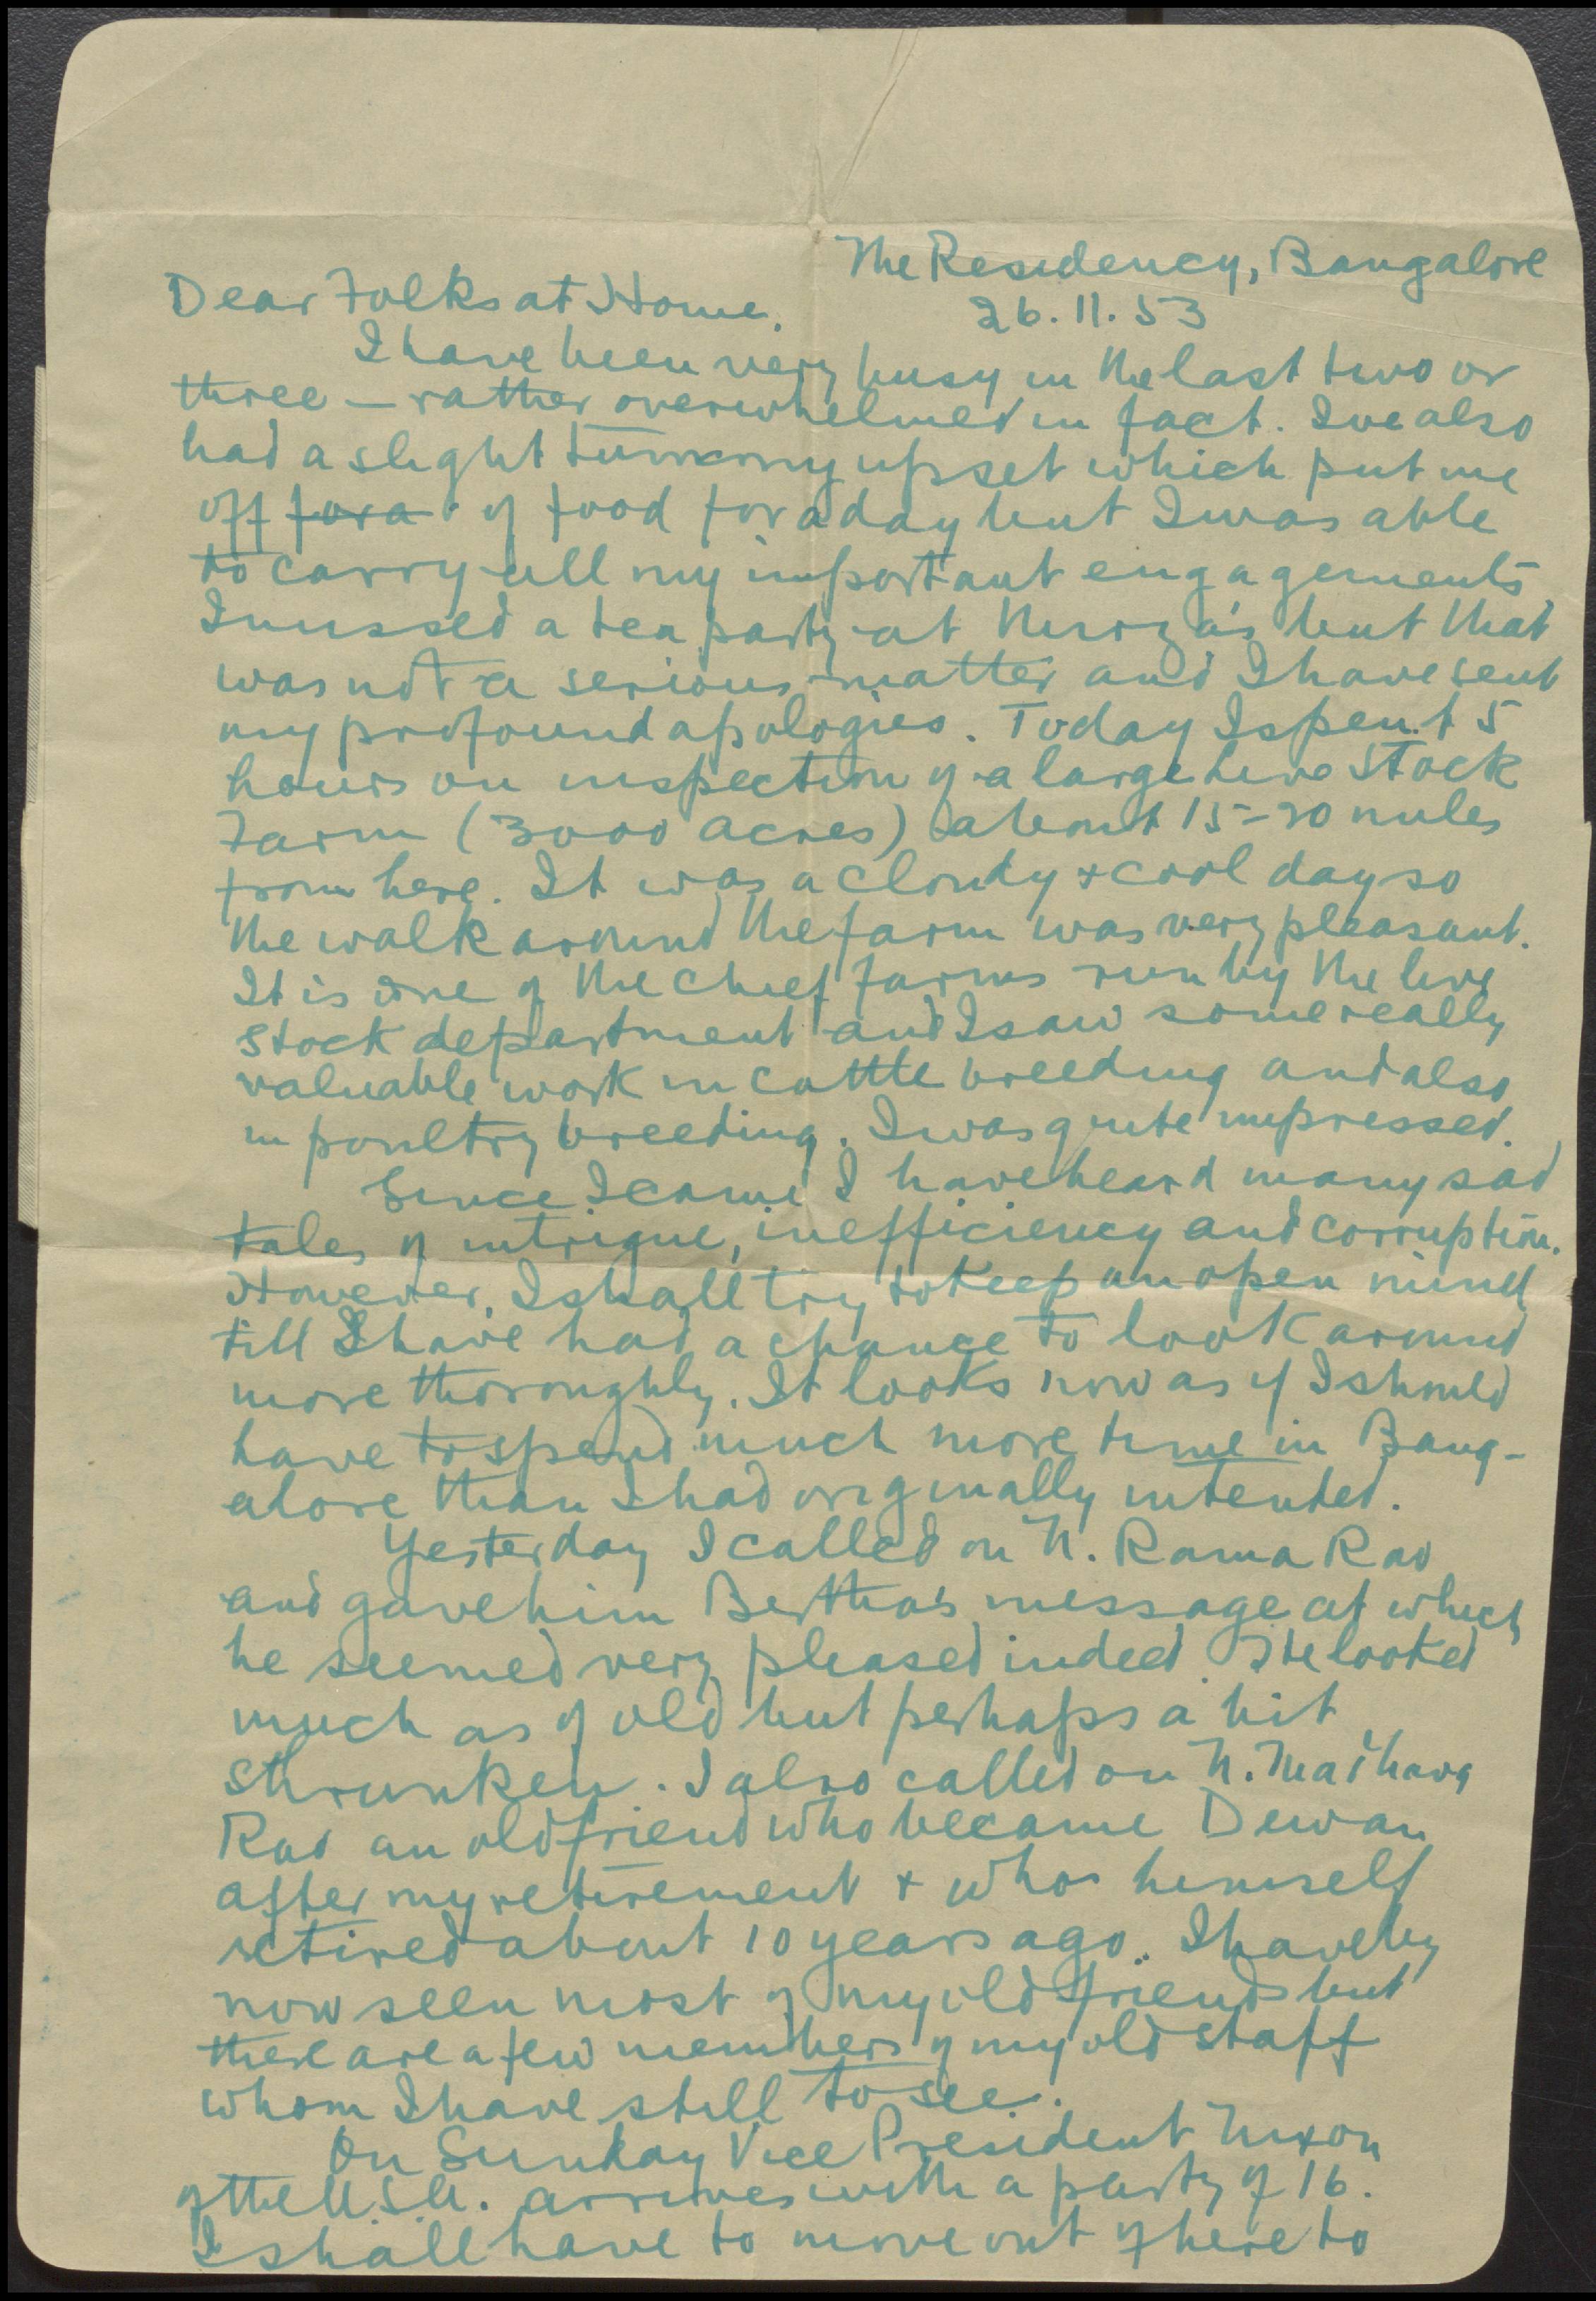 The Residency, Bangalore
26.11.53
Dear Folks at Home,
I have been very busy in the last two or
three — rather overwhelmed in fact. Ive also
had a slight tummy upset which put me
off for a of food for a day but I was able
to carry all my important engagements
I missed a tea party at Mirza's but that
was not a serious matter and I have sent
my profound apologies. Today I spent 5
hours on inspection of a large live Stock
Farm (3000 acres) about 15-20 miles
from here. It was a cloudy & cool day so
the walk around the farm was very pleasant.
It is one of the chief farms run by the live
stock department and I saw some really
valuable work in cattle breeding and also
in poultry breeding. I was quite impressed.
Since I came I have heard many sad
tales of intrigue, inefficiency and corruption.
However, I shall try to keep an open mind
till I have had a chance to look around
more thoroughly. It looks now as if I should
have to spend much more time in Bang-
alore than I had originally intended.
Yesterday I called on N. Rama Rao
and gave him Bertha's message at which
he seemed very pleased indeed. He looked
much as of old but perhaps a bit
shrunken. I also called on N. Madhava
Rao an old friend who became Dewan
after my retirement & who himself
retired about 10 years ago. I have by
now seen most of my old friends but
there are a few members of my old staff
whom I have still to see.
On Sunday Vice President Nixon
of the U.S.A. arrives with a party of 16.
I shall have to move out of here to